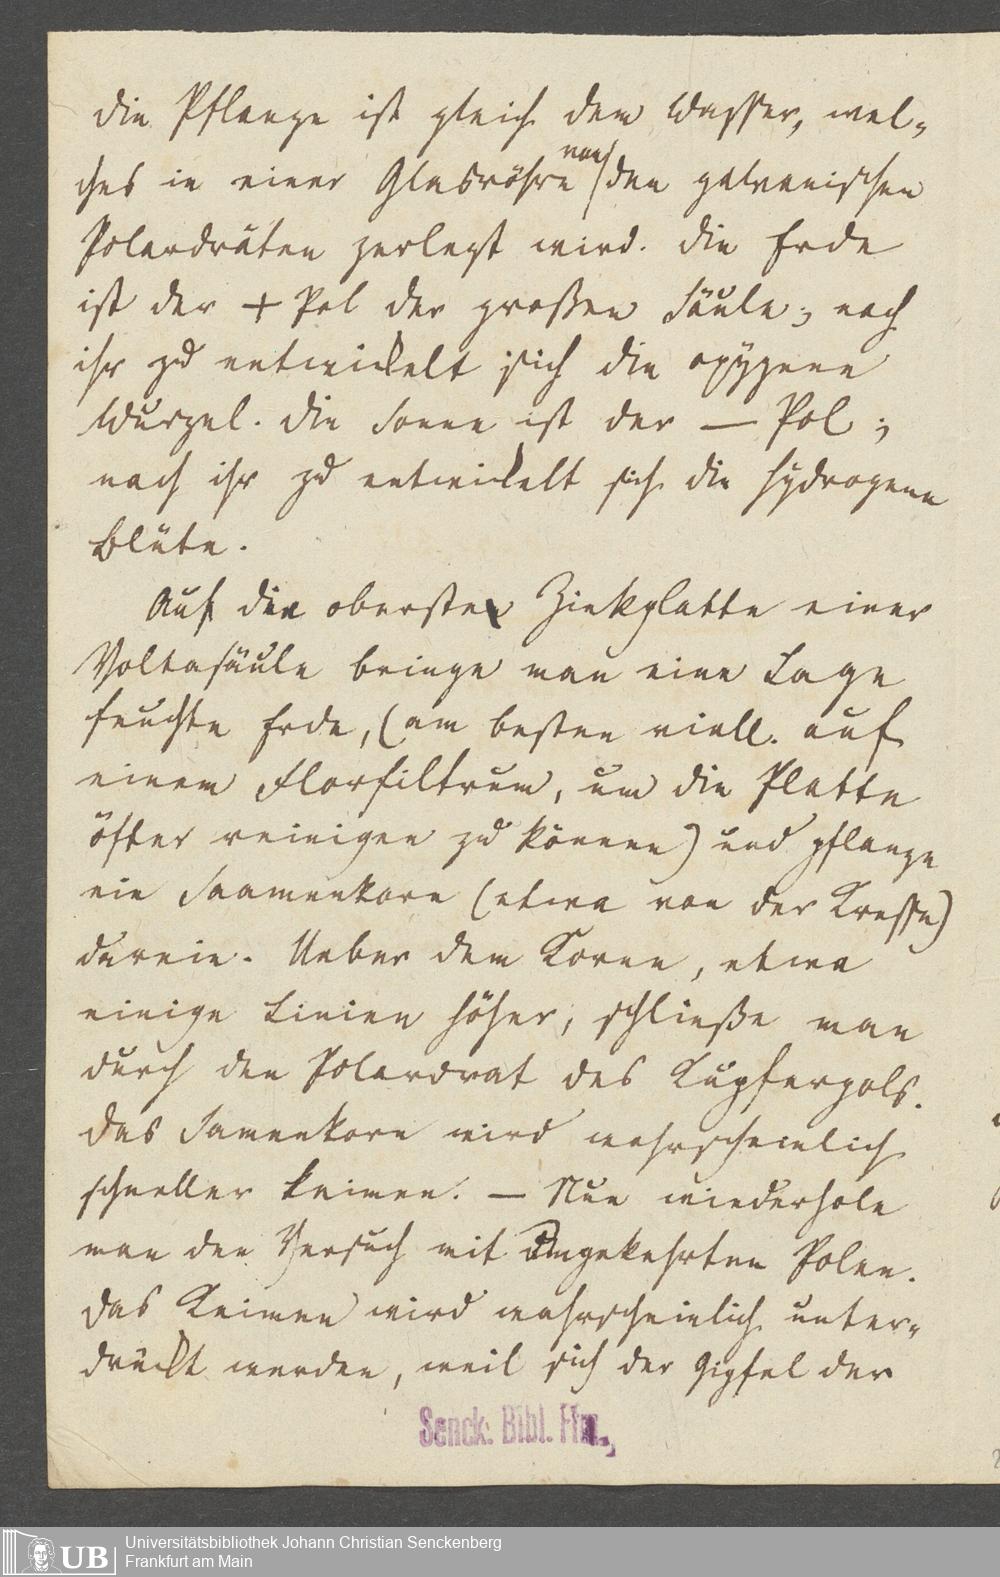 Die Pflanze ist gleich dem Wasser, wel-
ches in einer Glasröhre von den galvanischen
Polardräten zerlegt wird. Die Erde
ist der + Pol der großen Säule; nach
ihr zu entwickelt sich die oxygene
Wurzel. Die Sonne ist der — Pol;
nach ihr zu entwickelt sich die hydrogene
Blüte.
Auf die oberste Zinkplatte einer
Voltasäule bringe man eine Lage
feuchte Erde, (am besten viell. auf
einem Florfiltrum, um die Platte
öfter reinigen zu können) und pflanze
ein Saamenkorn (etwa von der Kresse)
darein. Ueber dem Korne, etwa
einige Linien höher, schließe man
durch den Polardrat des Kupferpols.
Das Samenkorn wird wahrscheinlich
schneller keimen. — Nun wiederhole
man den Versuch mit umgekehrten Polen.
Das Keimen wird wahrscheinlich unter-
drückt werden, weil sich der Gipfel der
Senck. Bibl. Ffm.
UB
Universitätsbibliothek Johann Christian Senckenberg
Frankfurt am Main